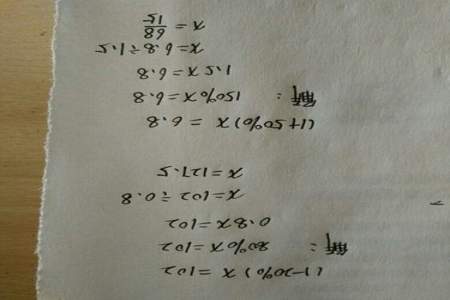 (1-20%)x=102
解: 80%x=102
0.8x=102
x=102÷0.8
x=127.5
(1+50%)x=6.8
解: 150%x=6.8
1.5x=6.8
x=6.8÷1.5
x=68/15